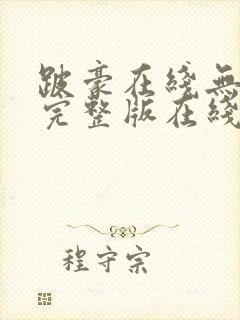 跛豪在綫無
完整版在綫
程守宗